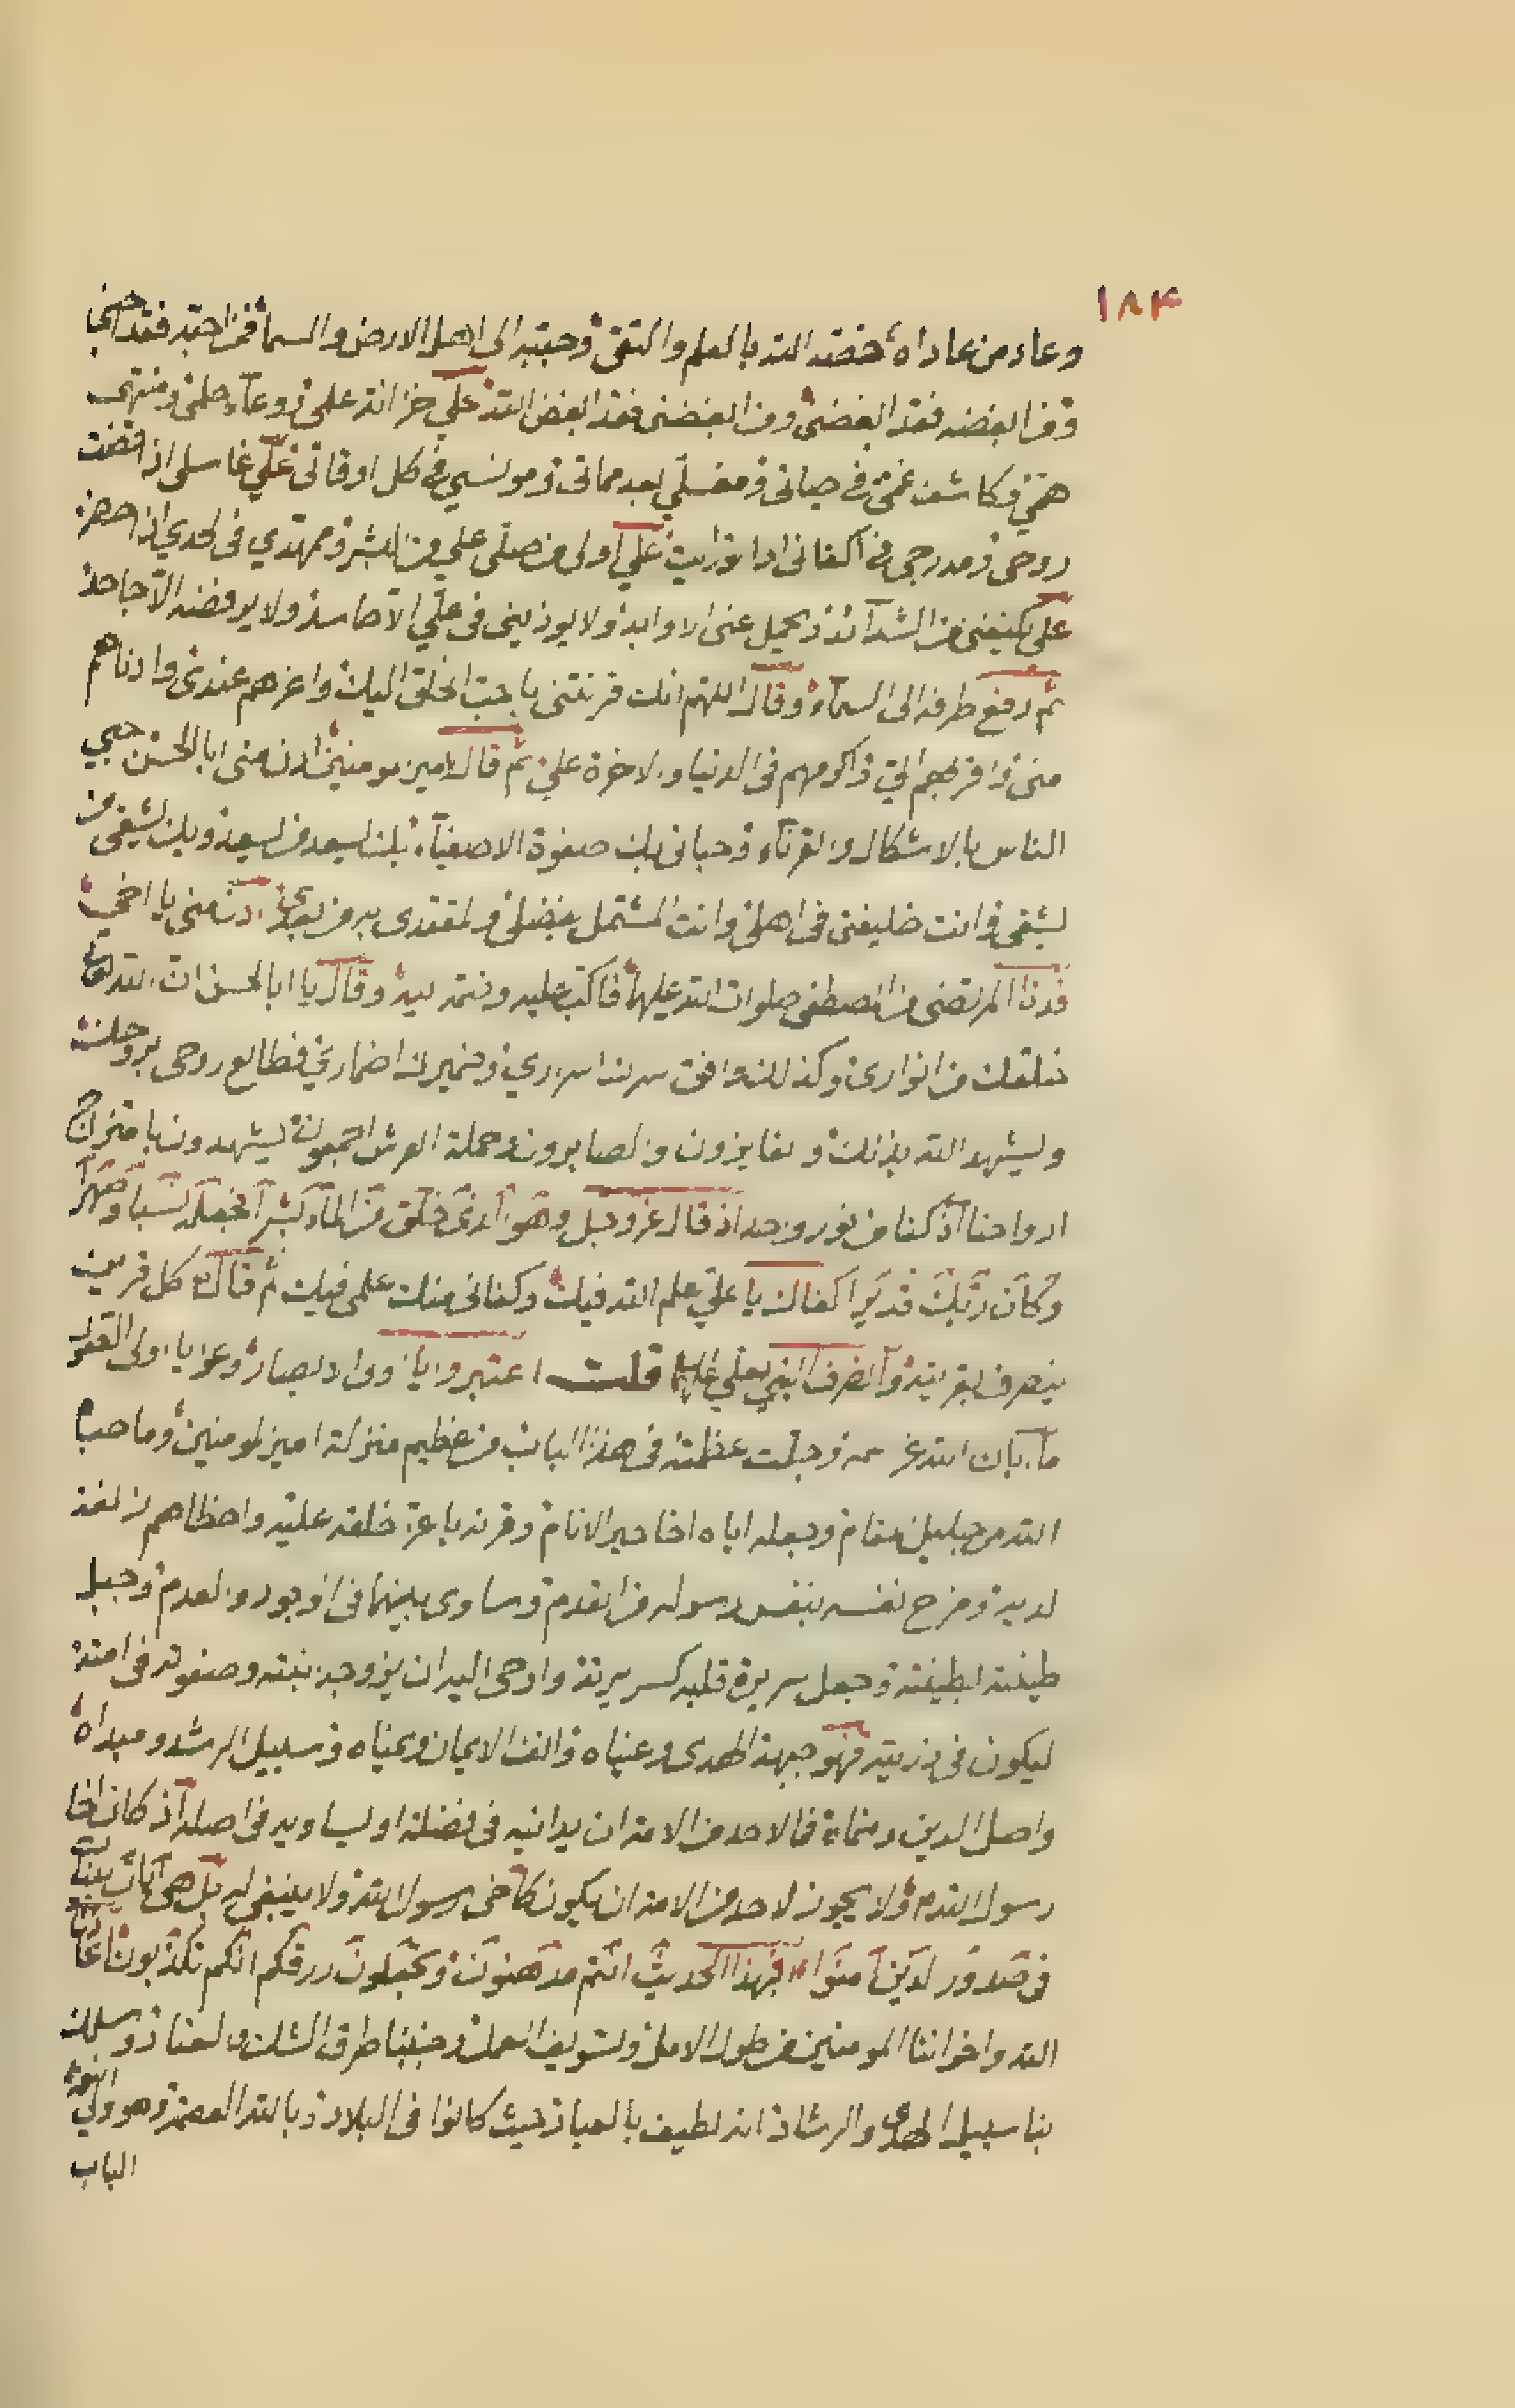 ١٨۴
وعاد من عاداه خصّه الله بالعلم والتقى وحبّبه الى اهل الارض والسما فمن احبّه فقد احبني
ومن ابغضه فقد ابغضني ومن ابغضني فقد ابغض الله علي خزانة علمي ووعاء حلمي ومنتهى
همّي وكاشف غمّي في حياتي ومغسلي بعد مماتي ومونسي في كل اوقاتي علي غاسلي اذا قبضت
روحي ومدرجي في اكفاني اذا تواريت علي اولى من صلّى علي من البشر وممهّدي في لحدي اذا حضر
علي يكفيني من الشدائد ويحمل عني الاوابد ولا يوذيني في علّي الا حاسد ولا يرفضه الا جاحد
ثم رفع طرفه الى السماء وقال اللهم انك قرنتني باحبّ الخلق اليك واعزهم عندي وادناهم
مني واقربهم الي واكرمهم في الدنيا والاخرة علي ثم قال امير مومنين ادن مني ابا الحسن حبي
الناس بالاشكال والقرناء وحباني بك صفوة الاصفياء بك يسعد من يسعد وبك يشقى من
يشقى وانت خليفتي في اهلي وانت المشتمل بفضلي والمقتدى به من بعدي ادن مني يا اخي
فدنا المرتضى من المصطفى صلوات الله عليهما فاكبّ عليه وضمّه بيده وقال يا ابا الحسن ان الله تعالى
خلقك من انواري وكذلك وافق سرك اسراري وضميرك اضماري فطالع روحي بروحك
وليشهد الله بذلك والفايزون والصابرون وحملة العرش اجمعون يشهدون بامتزاج
ارواحنا اذ كنا من نور واحد اذ قال عز وجل وهو الذي خلق من الماء بشرا فجعله نسبا وصهرا
وكان ربك قديرا كفاك يا علي علم الله فيك وكفاني منك علمي فيك ثم قال كل قرين
ينصرف بقرينه وانصرف النبي بعلي عليهما قلت اعتبروا يا اولي الابصار وعوا يا اولي العقول
ما ابان الله عز اسمه وجلّت عظمته في هذا الباب من عظيم منزلة امير المومنين وما حباه
الله من جليل مقام وجعله اياه اخا خير الانام وقرنه باعز خلقه عليه واحظاهم زلفة
لديه ومزج نفسه بنفس رسوله من القدم وساوى بينهما في الوجود والعدم وجبل
طينته بطينته وجعل سريرة قلبه كسريرته واوحى اليه ان يزوجه ابنته وصفوته في امته
ليكون في ذريته فهو جبهة الهدى وعيناه وانف الايمان ويمناه وسبيل الرشد ومبداه
واصل الدين ومنماه فما لاحد من الامة ان يدانيه في فضله او يساويه في اصله اذ كان اخا
رسول الله ولا يجوز لاحد من الامة ان يكون كاخي رسول الله ولا ينبغي له بل هي آيات بينات
في صدور الذين آمنوا افبهذا الحديث انتم مدهنون وتجعلون رزقكم انكم تكذبون اعاذنا
الله واخواننا المومنين من طول الامل وتسويف العمل وجنبنا طرق الشك والعناد وسلك
بنا سبيل الهدى والرشاد انه لطيف بالعباد حيث كانوا في البلاد وبالله العصمة وهو ولي
الباب